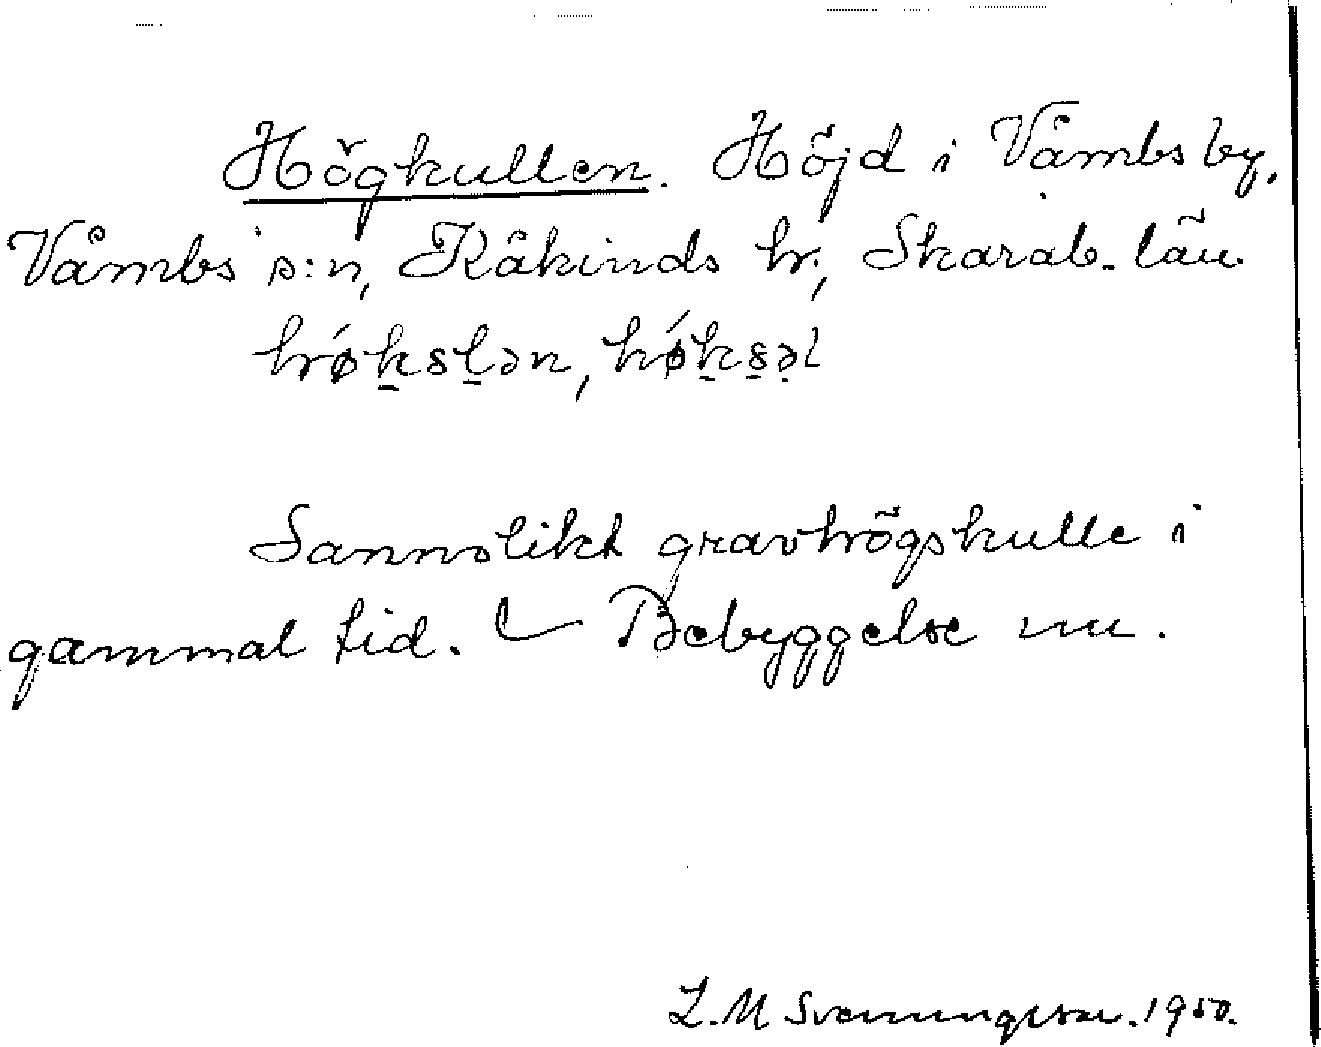 Högkullen. Höjd i Våmbs by,
Våmbs s:n, Kåkinds hr, Skarab. län
Sannolikt gravhögskulle i
gammal tid. Bebyggelse nu.
L. M Svenungsson. 1950.